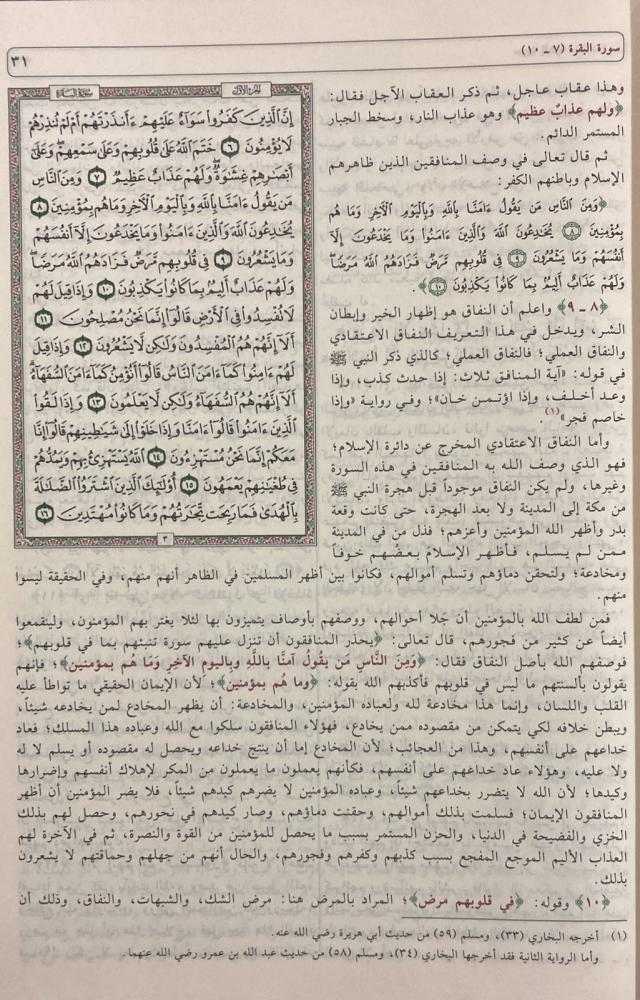 سورة البقرة (٧ - ١٠)
٣١
وهذا عقاب عاجل، ثم ذكر العقاب الآجل فقال:
﴿ولهم عذابٌ عظيم﴾ وهو عذاب النار، وسخط الجبار
المستمر الدائم.
ثم قال تعالى في وصف المنافقين الذين ظاهرهم
الإسلام وباطنهم الكفر:
﴿وَمِنَ النَّاسِ مَن يَقُولُ ءَامَنَّا بِاللَّهِ وَبِالْيَوْمِ الْآخِرِ وَمَا هُم
بِمُؤْمِنِينَ ﴿٨﴾ يُخَدِعُونَ اللَّهَ وَالَّذِينَ ءَامَنُوا وَمَا يَخْدَعُونَ إِلَّا
أَنفُسَهُمْ وَمَا يَشْعُرُونَ ﴿٩﴾ فِي قُلُوبِهِم مَّرَضٌ فَزَادَهُمُ اللَّهُ مَرَضًا
وَلَهُمْ عَذَابٌ أَلِيمٌ بِمَا كَانُوا يَكْذِبُونَ ﴿١٠﴾﴾.
﴿٨ - ٩﴾ واعلم أن النفاق هو إظهار الخير وإبطان
الشر، ويدخل في هذا التعريف النفاق الاعتقادي
والنفاق العملي؛ فالنفاق العملي؛ كالذي ذكر النبي ﷺ
في قوله: «آية المنافق ثلاث: إذا حدث كذب، وإذا
وعد أخلف، وإذا اؤتمن خان»؛ وفي رواية «وإذا
خاصم فجر»(١).
وأما النفاق الاعتقادي المخرج عن دائرة الإسلام؛
فهو الذي وصف الله به المنافقين في هذه السورة
وغيرها، ولم يكن النفاق موجوداً قبل هجرة النبي ﷺ
من مكة إلى المدينة ولا بعد الهجرة، حتى كانت وقعة
بدر وأظهر الله المؤمنين وأعزهم؛ فذل من في المدينة
ممن لم يسلم، فأظهر الإسلامَ بعضُهم خوفاً
ومخادعة؛ ولتحقن دماؤهم وتسلم أموالهم، فكانوا بين أظهر المسلمين في الظاهر أنهم منهم، وفي الحقيقة ليسوا
منهم.
فمن لطف الله بالمؤمنين أن جَلا أحوالهم، ووصفهم بأوصاف يتميزون بها لئلا يغتر بهم المؤمنون، ولينقمعوا
أيضاً عن كثير من فجورهم، قال تعالى: ﴿يحذر المنافقون أن تنزل عليهم سورة تنبئهم بما في قلوبهم﴾؛
فوصفهم الله بأصل النفاق فقال: ﴿وَمِنَ النَّاسِ مَن يَقُولُ آمنَّا بِاللَّهِ وباليوم الآخِرِ وَمَا هُم بمؤمنين﴾؛ فإنهم
يقولون بألسنتهم ما ليس في قلوبهم فأكذبهم الله بقوله: ﴿وما هُم بمؤمنين﴾؛ لأن الإيمان الحقيقي ما تواطأ عليه
القلب واللسان، وإنما هذا مخادعة لله ولعباده المؤمنين، والمخادعة: أن يظهر المخادع لمن يخادعه شيئاً،
ويبطن خلافه لكي يتمكن من مقصوده ممن يخادع، فهؤلاء المنافقون سلكوا مع الله وعباده هذا المسلك؛ فعاد
خداعهم على أنفسهم، وهذا من العجائب؛ لأن المخادع إما أن ينتج خداعه ويحصل له مقصوده أو يسلم لا له
ولا عليه، وهؤلاء عاد خداعهم على أنفسهم، فكأنهم يعملون ما يعملون من المكر لإهلاك أنفسهم وإضرارها
وكيدها؛ لأن الله لا يتضرر بخداعهم شيئاً، وعباده المؤمنين لا يضرهم كيدهم شيئاً، فلا يضر المؤمنين أن أظهر
المنافقون الإيمان؛ فسلمت بذلك أموالهم، وحقنت دماؤهم، وصار كيدهم في نحورهم، وحصل لهم بذلك
الخزي والفضيحة في الدنيا، والحزن المستمر بسبب ما يحصل للمؤمنين من القوة والنصرة، ثم في الآخرة لهم
العذاب الأليم الموجع المفجع بسبب كذبهم وكفرهم وفجورهم، والحال أنهم من جهلهم وحماقتهم لا يشعرون
بذلك.
﴿١٠﴾ وقوله: ﴿في قلوبهم مرض﴾؛ المراد بالمرض هنا: مرض الشك، والشبهات، والنفاق، وذلك أن
الجزء الأول
سورة البقرة
إِنَّ الَّذِينَ كَفَرُوا سَوَاءٌ عَلَيْهِمْ ءَأَنذَرْتَهُمْ أَمْ لَمْ تُنذِرْهُمْ
لَا يُؤْمِنُونَ ٦ خَتَمَ اللَّهُ عَلَى قُلُوبِهِمْ وَعَلَى سَمْعِهِمْ وَعَلَى
أَبْصَارِهِمْ غِشَاوَةٌ وَلَهُمْ عَذَابٌ عَظِيمٌ ٧ وَمِنَ النَّاسِ
مَن يَقُولُ ءَامَنَّا بِاللَّهِ وَبِالْيَوْمِ الْآخِرِ وَمَا هُم بِمُؤْمِنِينَ ٨
يُخَادِعُونَ اللَّهَ وَالَّذِينَ ءَامَنُوا وَمَا يَخْدَعُونَ إِلَّا أَنفُسَهُمْ
وَمَا يَشْعُرُونَ ٩ فِي قُلُوبِهِم مَّرَضٌ فَزَادَهُمُ اللَّهُ مَرَضًا
وَلَهُمْ عَذَابٌ أَلِيمٌ بِمَا كَانُوا يَكْذِبُونَ ١٠ وَإِذَا قِيلَ لَهُمْ
لَا تُفْسِدُوا فِي الْأَرْضِ قَالُوا إِنَّمَا نَحْنُ مُصْلِحُونَ ١١
أَلَا إِنَّهُمْ هُمُ الْمُفْسِدُونَ وَلَكِن لَّا يَشْعُرُونَ ١٢ وَإِذَا قِيلَ
لَهُمْ ءَامِنُوا كَمَا ءَامَنَ النَّاسُ قَالُوا أَنُؤْمِنُ كَمَا ءَامَنَ السُّفَهَاءُ
أَلَا إِنَّهُمْ هُمُ السُّفَهَاءُ وَلَكِن لَّا يَعْلَمُونَ ١٣ وَإِذَا لَقُوا
الَّذِينَ ءَامَنُوا قَالُوا ءَامَنَّا وَإِذَا خَلَوْا إِلَى شَيَاطِينِهِمْ قَالُوا إِنَّا
مَعَكُمْ إِنَّمَا نَحْنُ مُسْتَهْزِءُونَ ١٤ اللَّهُ يَسْتَهْزِئُ بِهِمْ وَيَمُدُّهُمْ
فِي طُغْيَانِهِمْ يَعْمَهُونَ ١٥ أُولَئِكَ الَّذِينَ اشْتَرَوُا الضَّلَالَةَ
بِالْهُدَى فَمَا رَبِحَت تِّجَارَتُهُمْ وَمَا كَانُوا مُهْتَدِينَ ١٦
٣
(١) أخرجه البخاري (٣٣)، ومسلم (٥٩) من حديث أبي هريرة رضي الله عنه.
وأما الرواية الثانية فقد أخرجها البخاري (٣٤)، ومسلم (٥٨) من حديث عبد الله بن عمرو رضي الله عنهما.